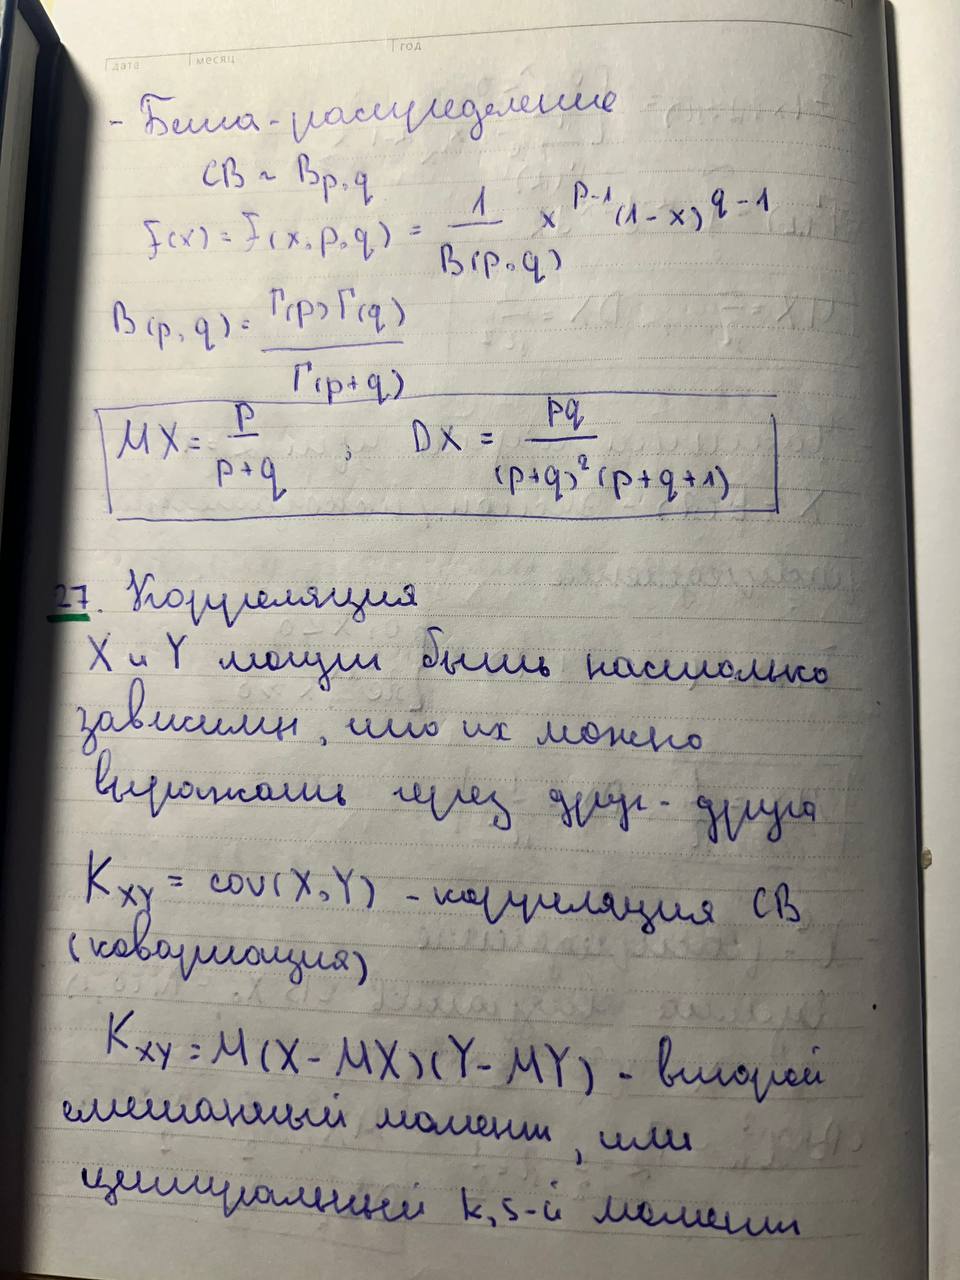 дата месяц год
- Бета-распределение
СВ ~ Bp,q
f(x) = f(x,p,q) = 1/B(p,q) x^p-1 (1-x)^q-1
B(p,q) = Γ(p)Γ(q)/Γ(p+q)
MX = p/p+q ; DX = pq/(p+q)²(p+q+1)
27. Корреляция
X и Y могут быть настолько
зависимы, что их можно
выражать через друг-друга
K_XY = cov(X,Y) - корреляция СВ
(ковариация)
K_XY = M(X-MX)(Y-MY) - второй
смешанный момент, или
центральный k,s-й момент